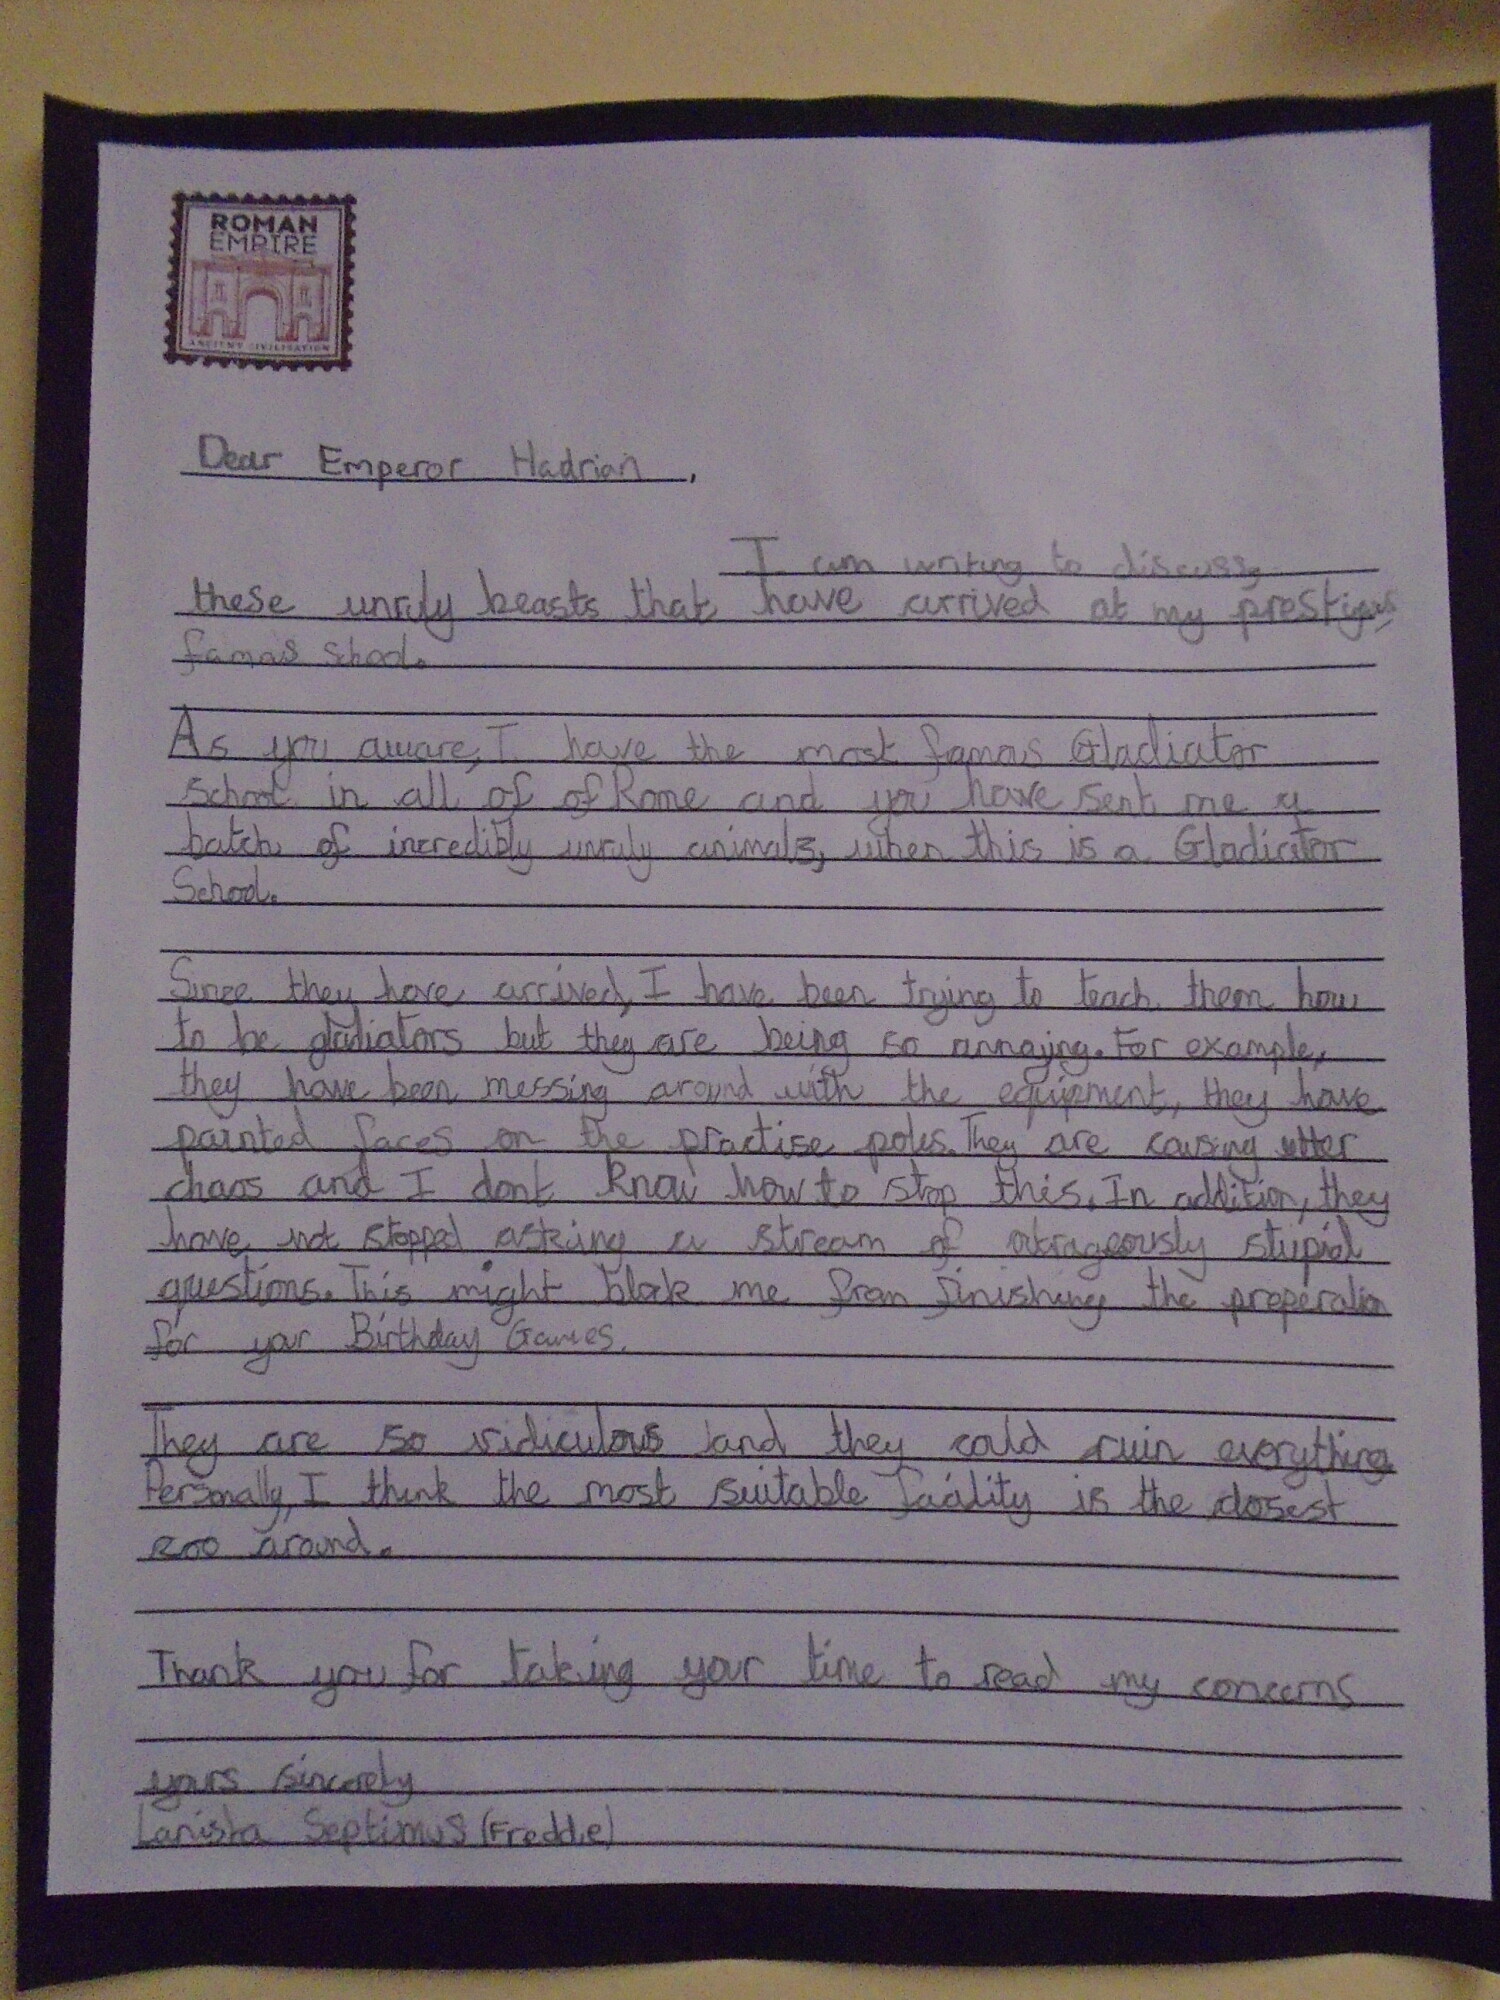 ROMAN
EMPIRE
ANCIENT CIVILISATION
Dear Emperor Hadrian,
I am writing to discuss
these unruly beasts that have arrived at my
famas School.
As you aware, I have the most famas Gladiator
School in all of of Rome and you have sent me a
batch of incredibly unruly animals, when this is a Gladiator
School.
Since they have arrived, I have been trying to teach them how
to be gladiators but they are being so annoying. For example,
they have been messing around with the equipment, they have
painted faces on the practise poles. They are causing utter
chaos and I dont know how to stop this. In addition, they
have not stopped asking a stream of outrageously stupid
questions. This might block me from finishing the
for your Birthday Games.
They are so ridiculous and they could ruin everything
Personally, I think the most suitable facility is the closest
zoo around.
Thank you for taking your time to read my concerns
yours sincerely
Lanista Septimus (Freddie)